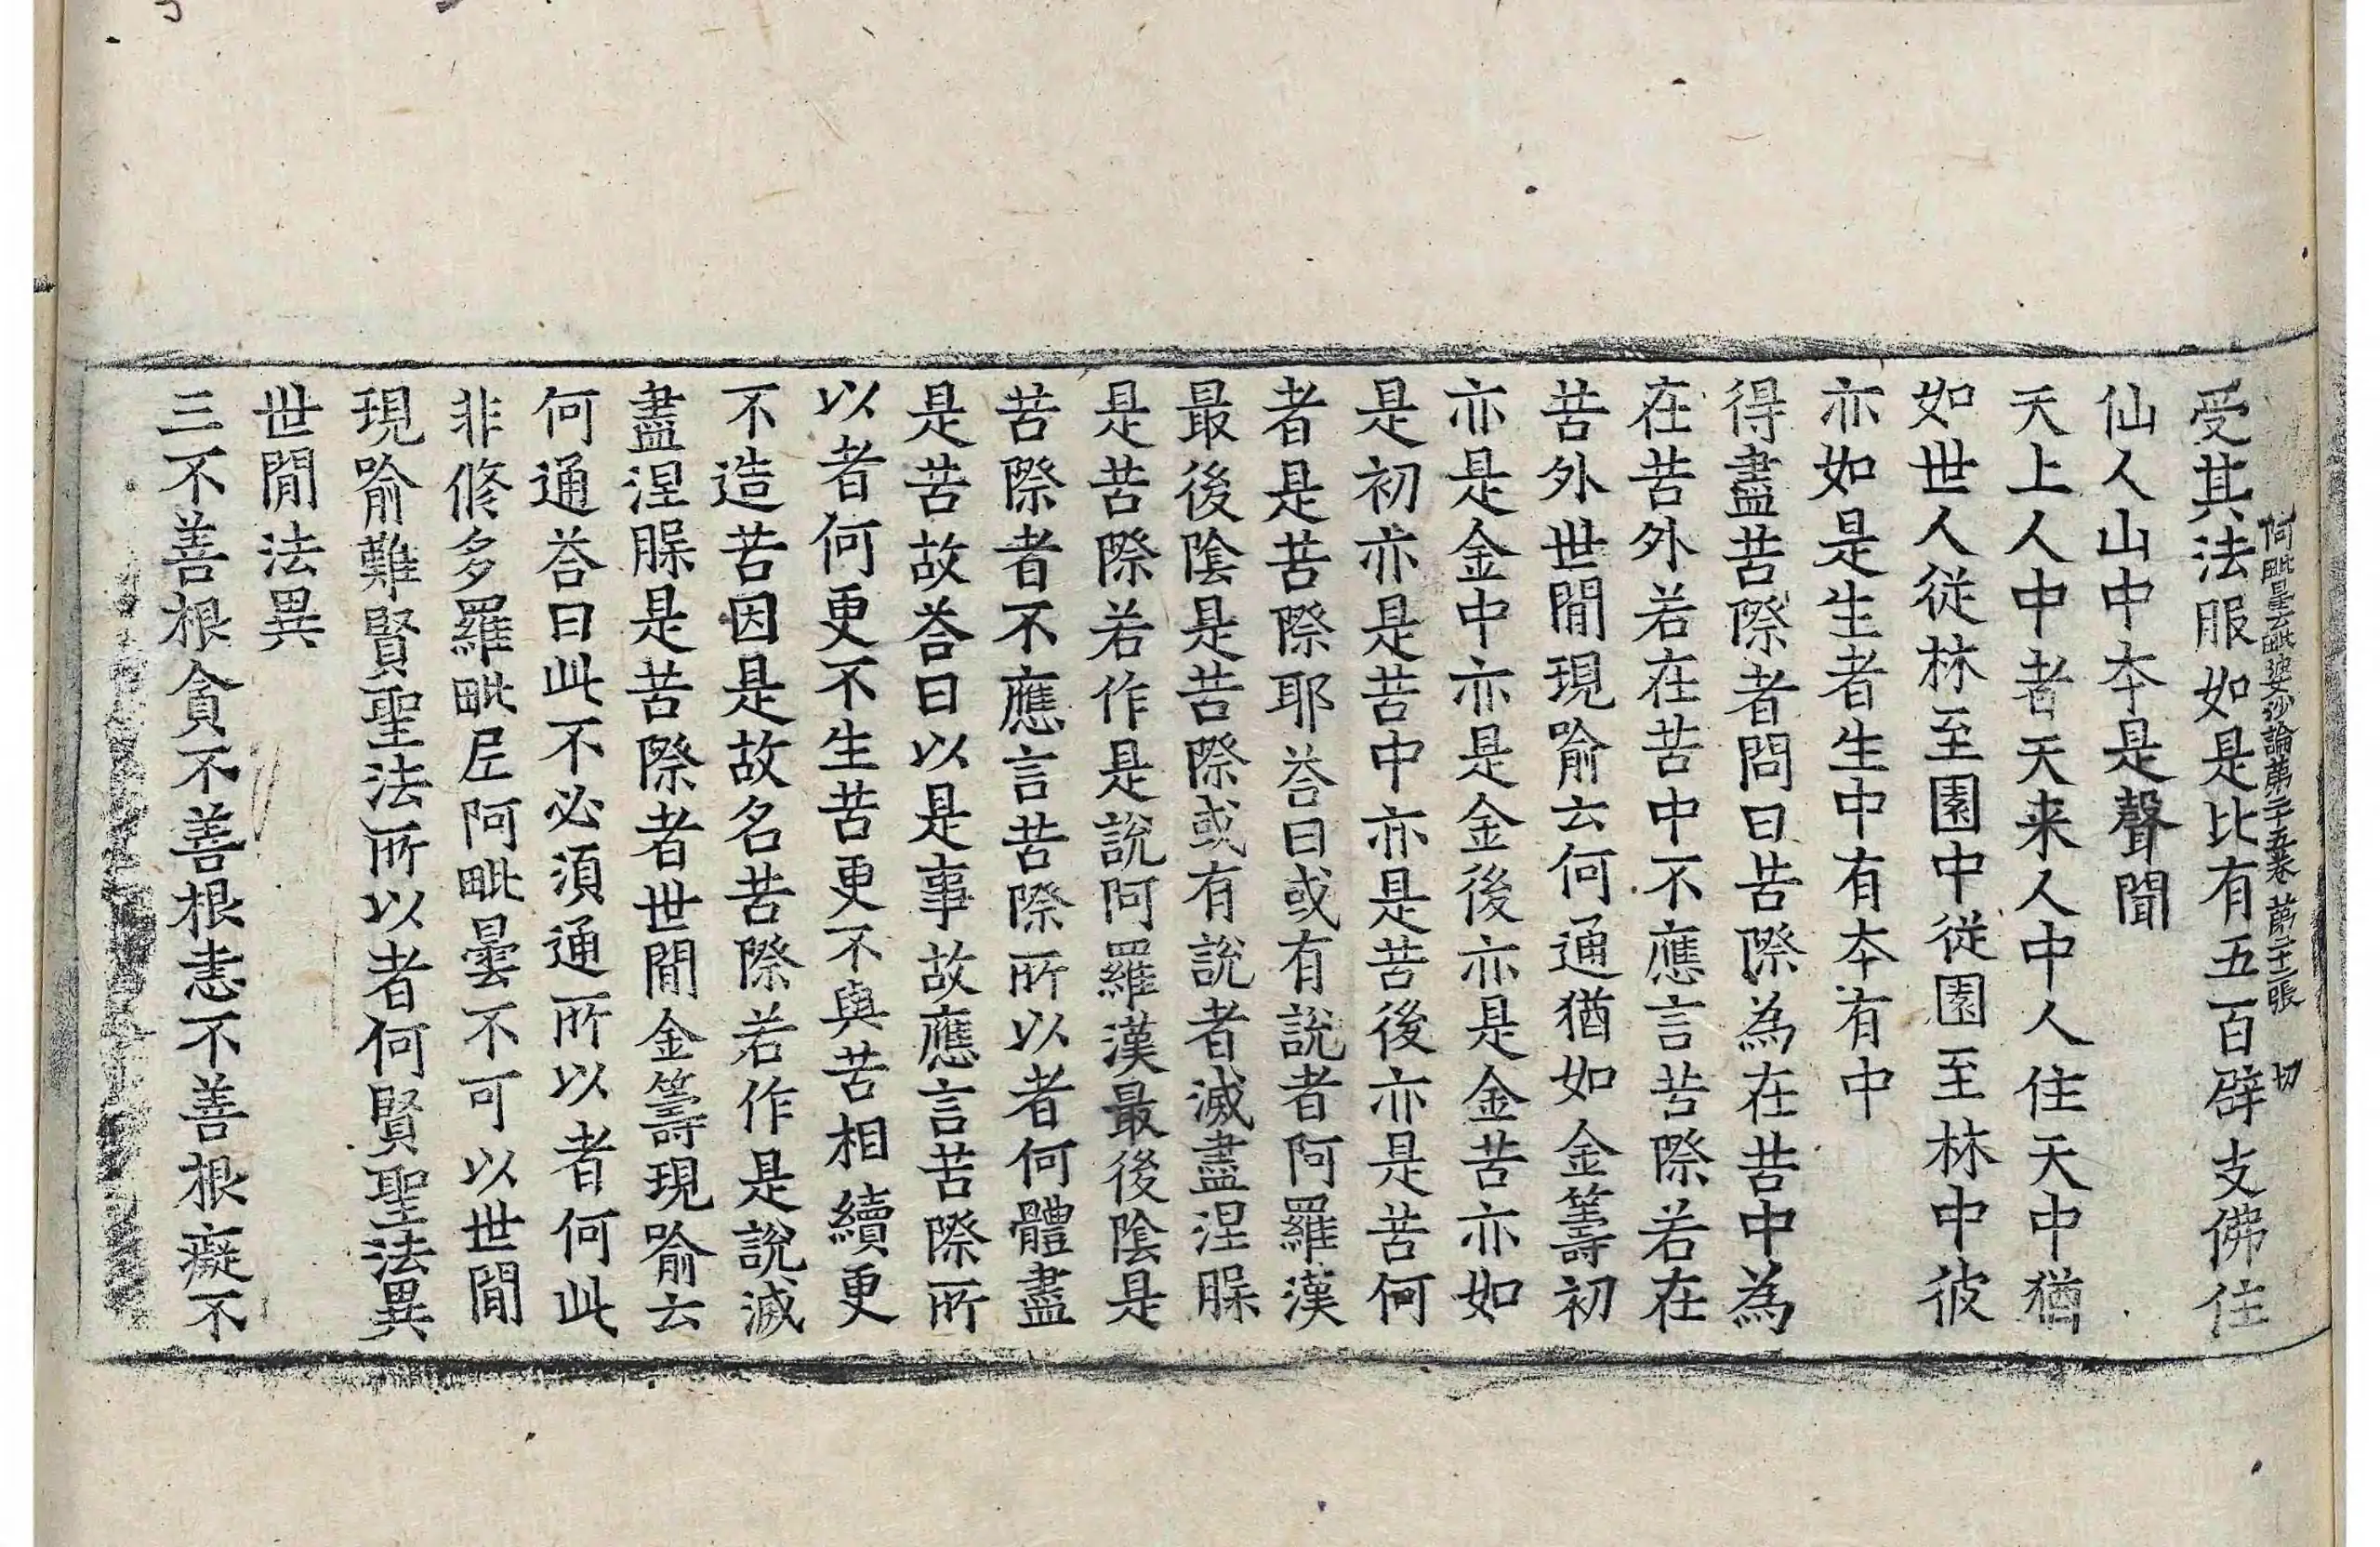 阿毗曇毗婆沙論第二十五卷　第二十二張　切
受其法服如是比有五百辟支佛住
仙人山中夲是聲聞
天上人中者天来人中人住天中猶
如世人從林至園中從園至林中彼
亦如是生者生中有夲有中
得盡苦際者問曰苦際為在苦中為
在苦外若在苦中不應言苦際若在
苦外世閒現喻云何通猶如金籌初
亦是金中亦是金後亦是金苦亦如
是初亦是苦中亦是苦後亦是苦何
者是苦際耶荅曰或有說者阿羅漢
最後陰是苦際或有說者滅盡涅脲
是苦際若作是說阿羅漢最後陰是
苦際者不應言苦際所以者何體盡
是苦故荅曰以是事故應言苦際所
以者何更不生苦更不與苦相續更
不造苦因是故名苦際若作是說滅
盡涅脲是苦際者世間金籌現喻云
何通荅曰此不必須通所以者何此
非修多羅毗尼阿毗曇不可以世間
現喻難賢聖法所以者何賢聖法異
世閒法異
三不善根貪不善根恚不善根癡不